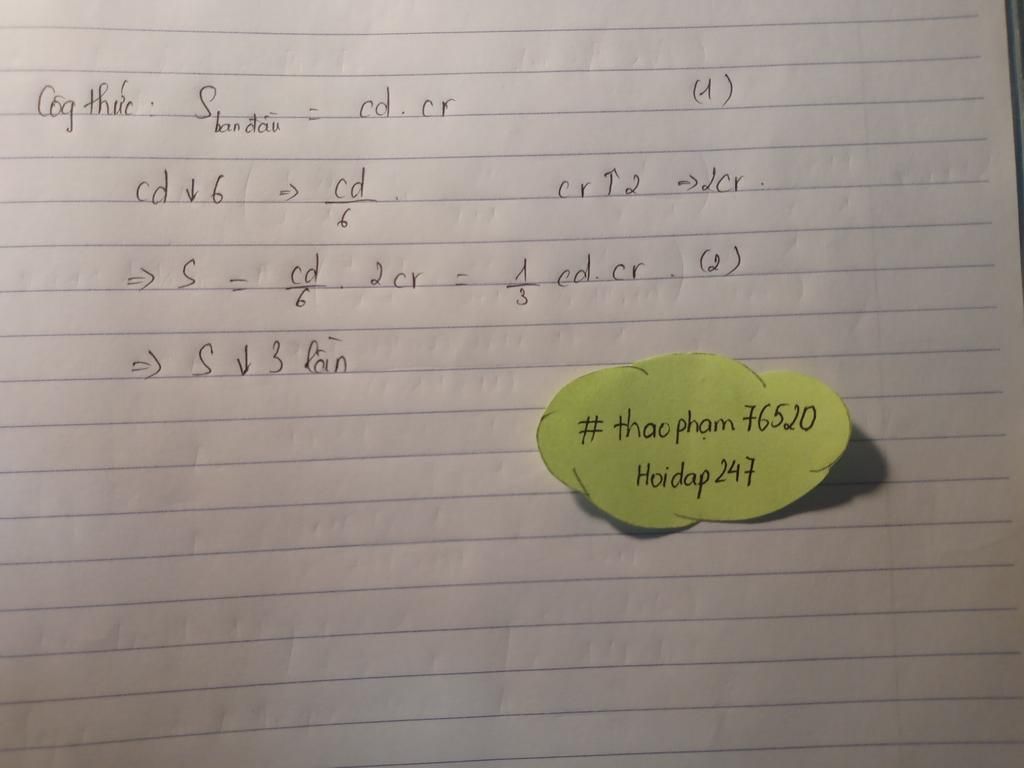 Côg thức : S ban đầu = cd . cr (1)
cd ↓ 6 => cd/6 . cr ↑ 2 => 2cr .
=> S = cd/6 . 2cr = 1/3 cd . cr . (2)
=> S ↓ 3 lần
# thao phạm 76520
Hoidap247